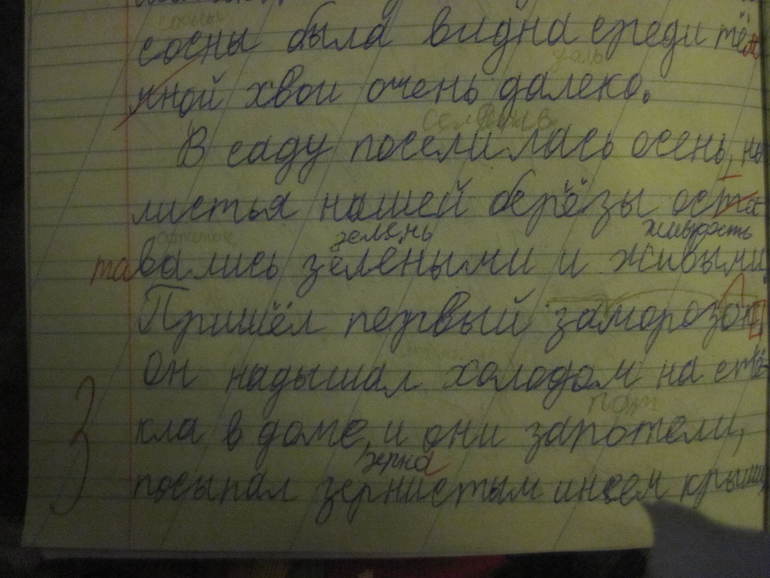 сосны была видна среди тём
даль
ной хвои очень далеко.
В саду поселилась осень, но
листья нашей берёзы оста
зелень живость
тавались зелеными и живыми.
Пришёл первый заморозок,
он надышал холодом на стё-
пот
кла в доме, и они запотели,
зерно
посыпал зернистым инеем крыши
3